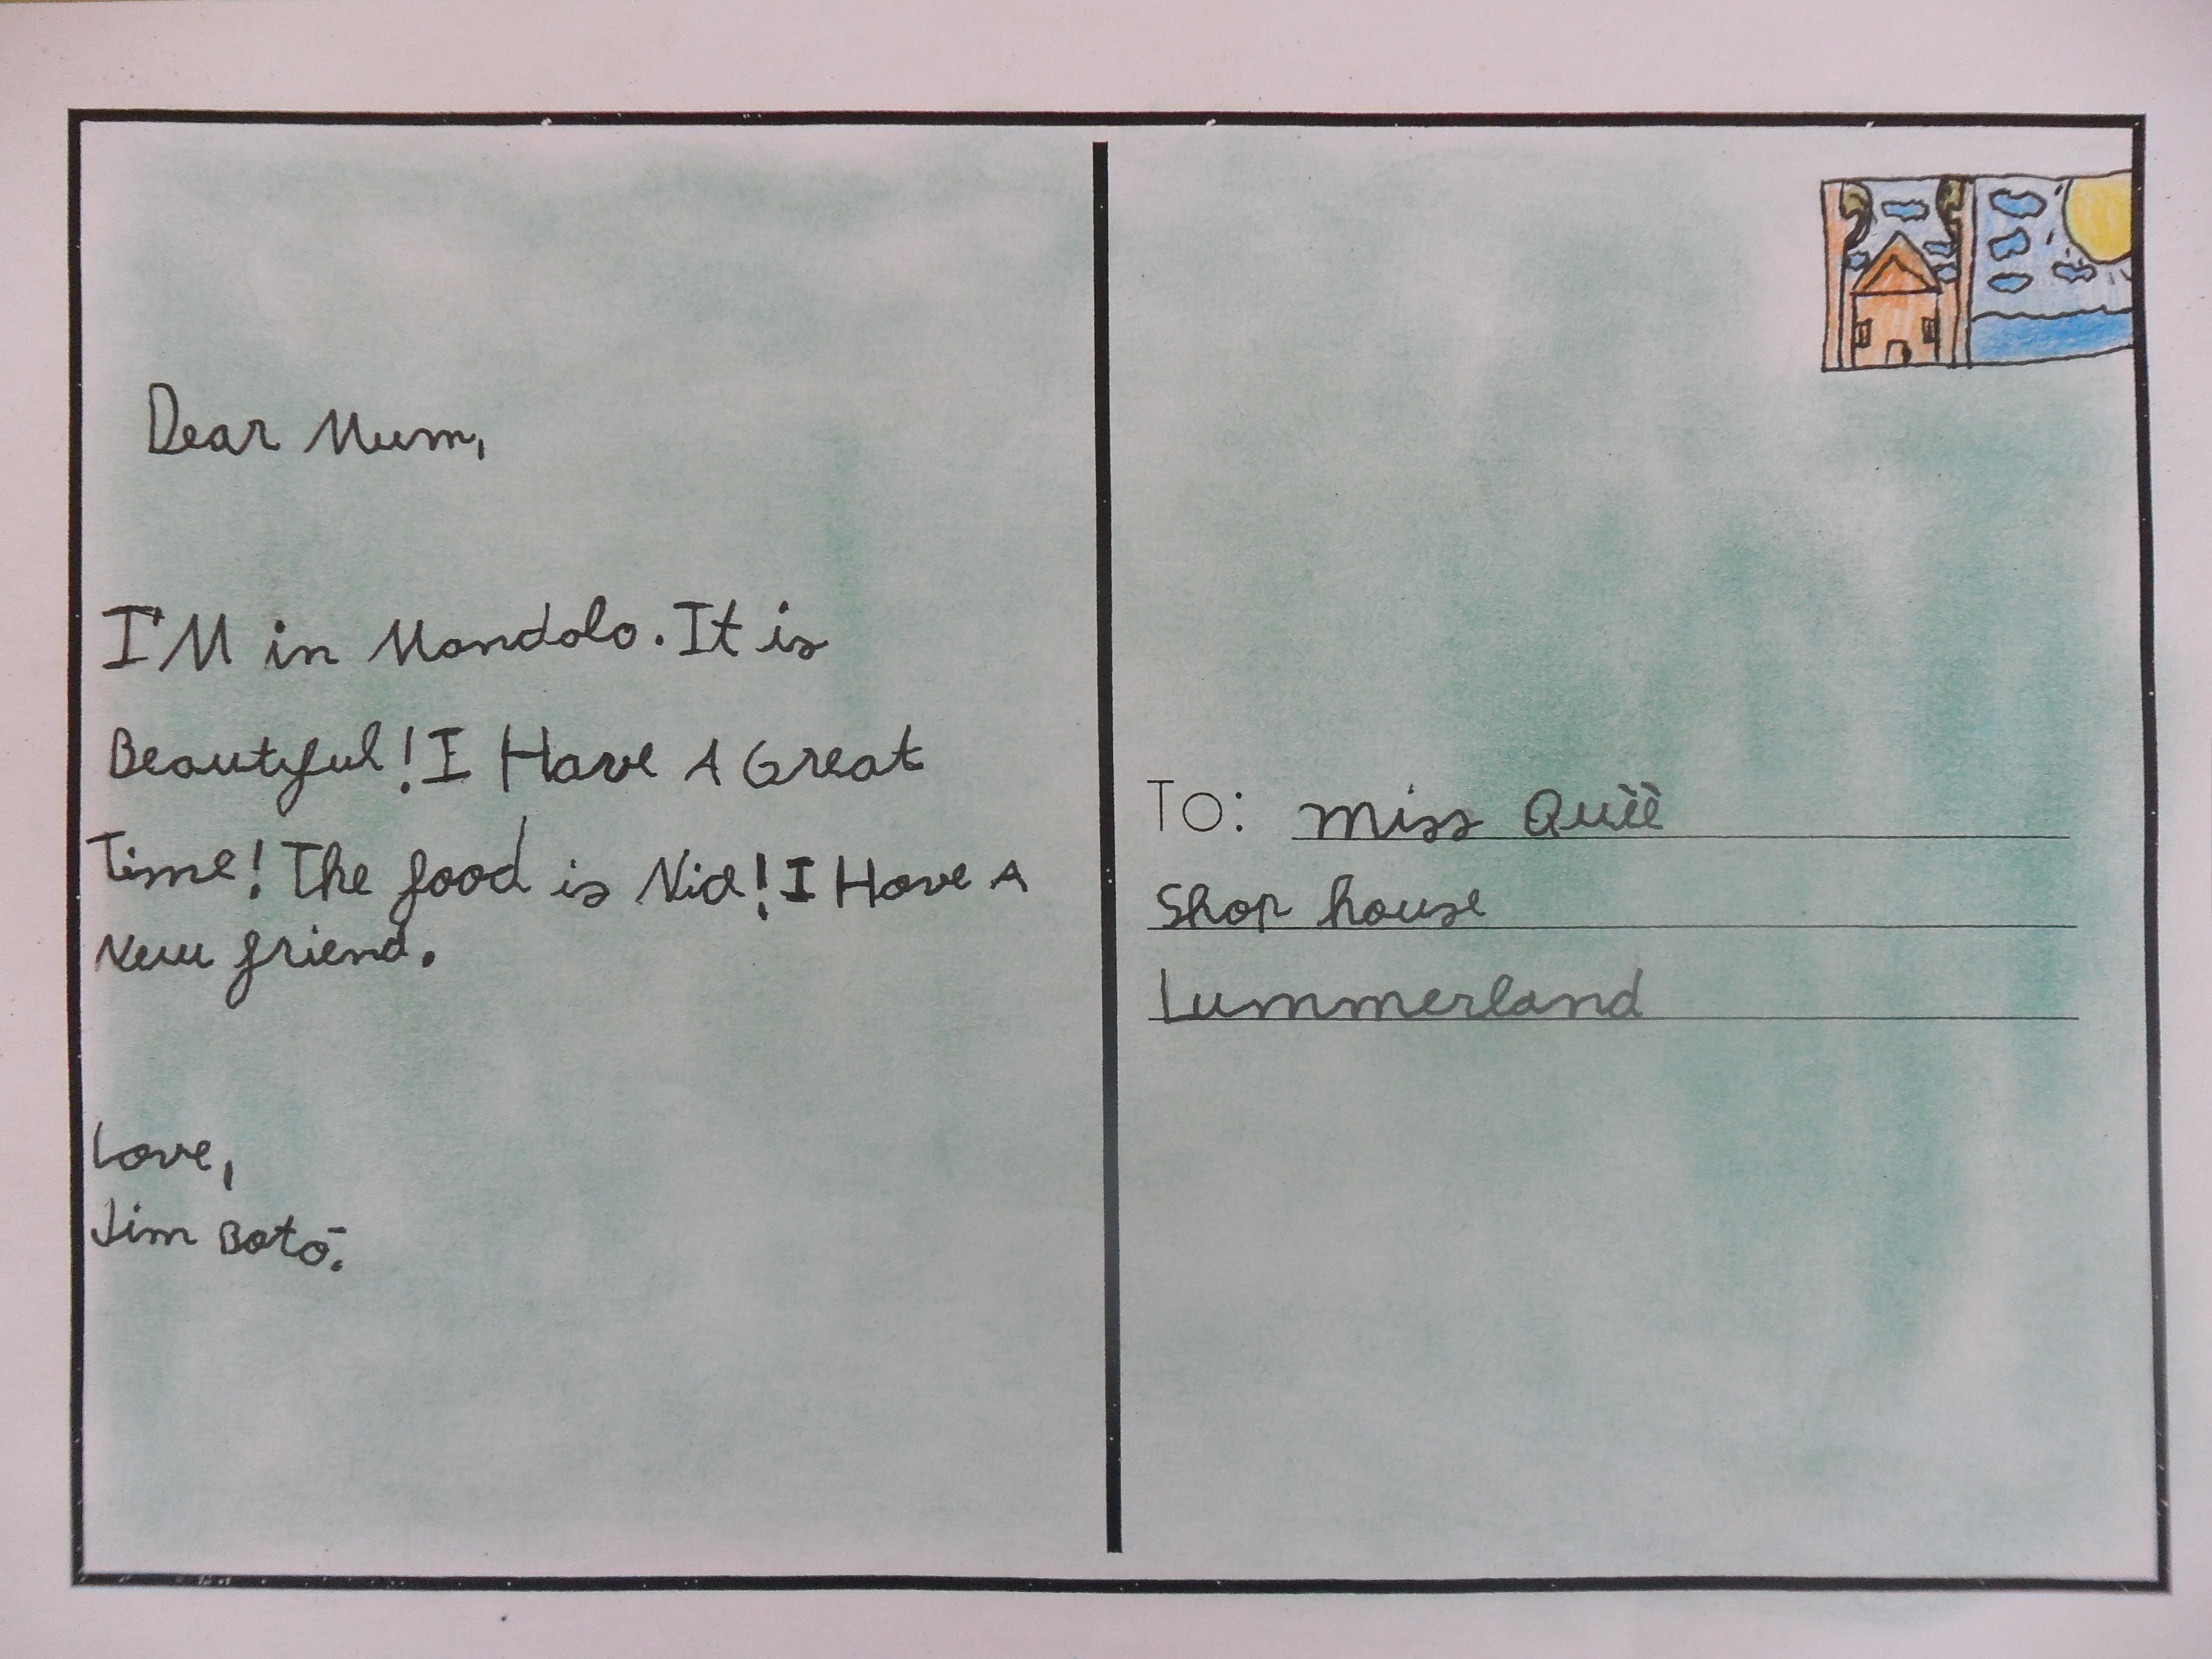 Dear Mum,
I'M in Mandolo. It is
Beautyful! I Have A Great
Time! The food is Nice! I Have A
New friend.
Love,
Jim Botō.
To: Miss Quèè
Shop house
Lummerland